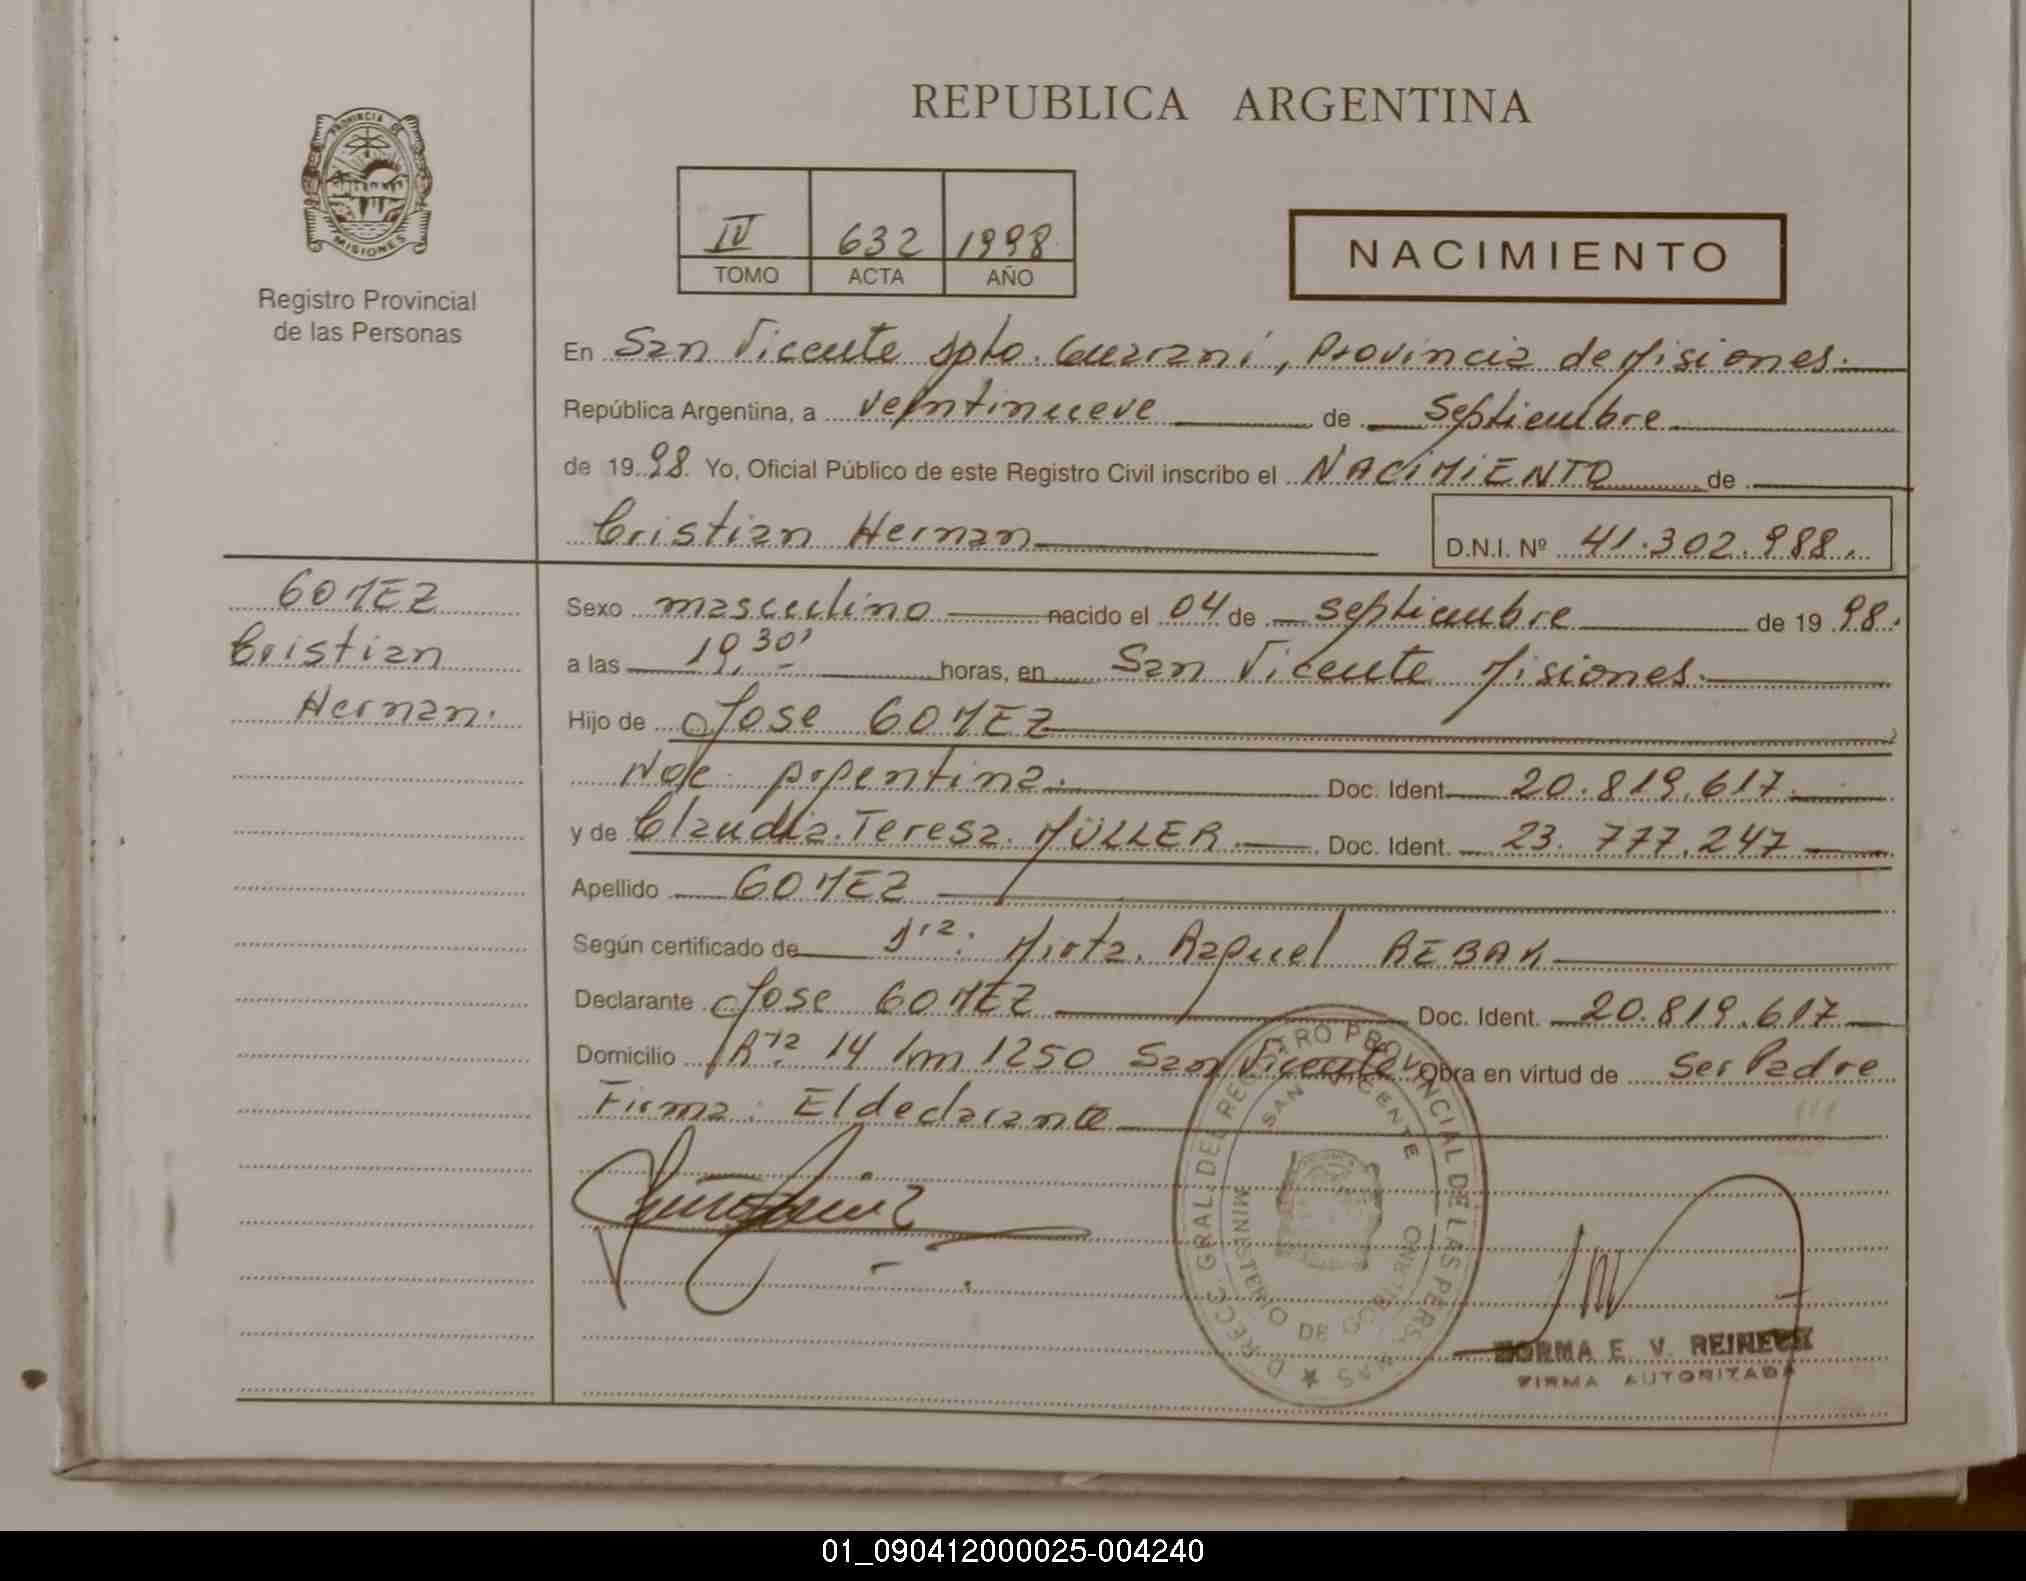 REPUBLICA ARGENTINA
PROVINCIA DE MISIONES
Registro Provincial
de las Personas
IV 632 1998
TOMO ACTA AÑO
NACIMIENTO
En San Vicente Dpto. Guaraní, Provincia de Misiones.
República Argentina, a veintinueve de Septiembre
de 1998. Yo, Oficial Público de este Registro Civil inscribo el NACIMIENTO de
Cristian Hernan
D.N.I. Nº 41.302.988.
GOMEZ
Cristian
Hernan.
Sexo masculino nacido el 04 de septiembre de 1998.
a las 19,30' horas, en San Vicente Misiones.
Hijo de Jose GOMEZ
Nac. Argentina. Doc. Ident. 20.819.617.
y de Claudia Teresa MÜLLER Doc. Ident. 23.777.247
Apellido GOMEZ
Según certificado de Dra. Mirta Raquel REBAK
Declarante Jose GOMEZ Doc. Ident. 20.819.617
Domicilio Rta. 14 km 1250 San Vicente Obra en virtud de Ser Padre
Firma: El declarante
DIRECC. GRAL. DEL REGISTRO PROVINCIAL DE LAS PERSONAS
SAN VICENTE
MINISTERIO DE GOBIERNO
NORMA E. V. REINECK
FIRMA AUTORIZADA
01_090412000025-004240